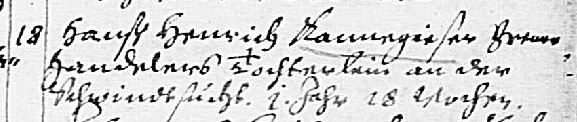 18 Hanß Henrich Kannegieser
Handelers Töchterlein an der
Schwindtsucht. 1. Jahr 18 Wochen.